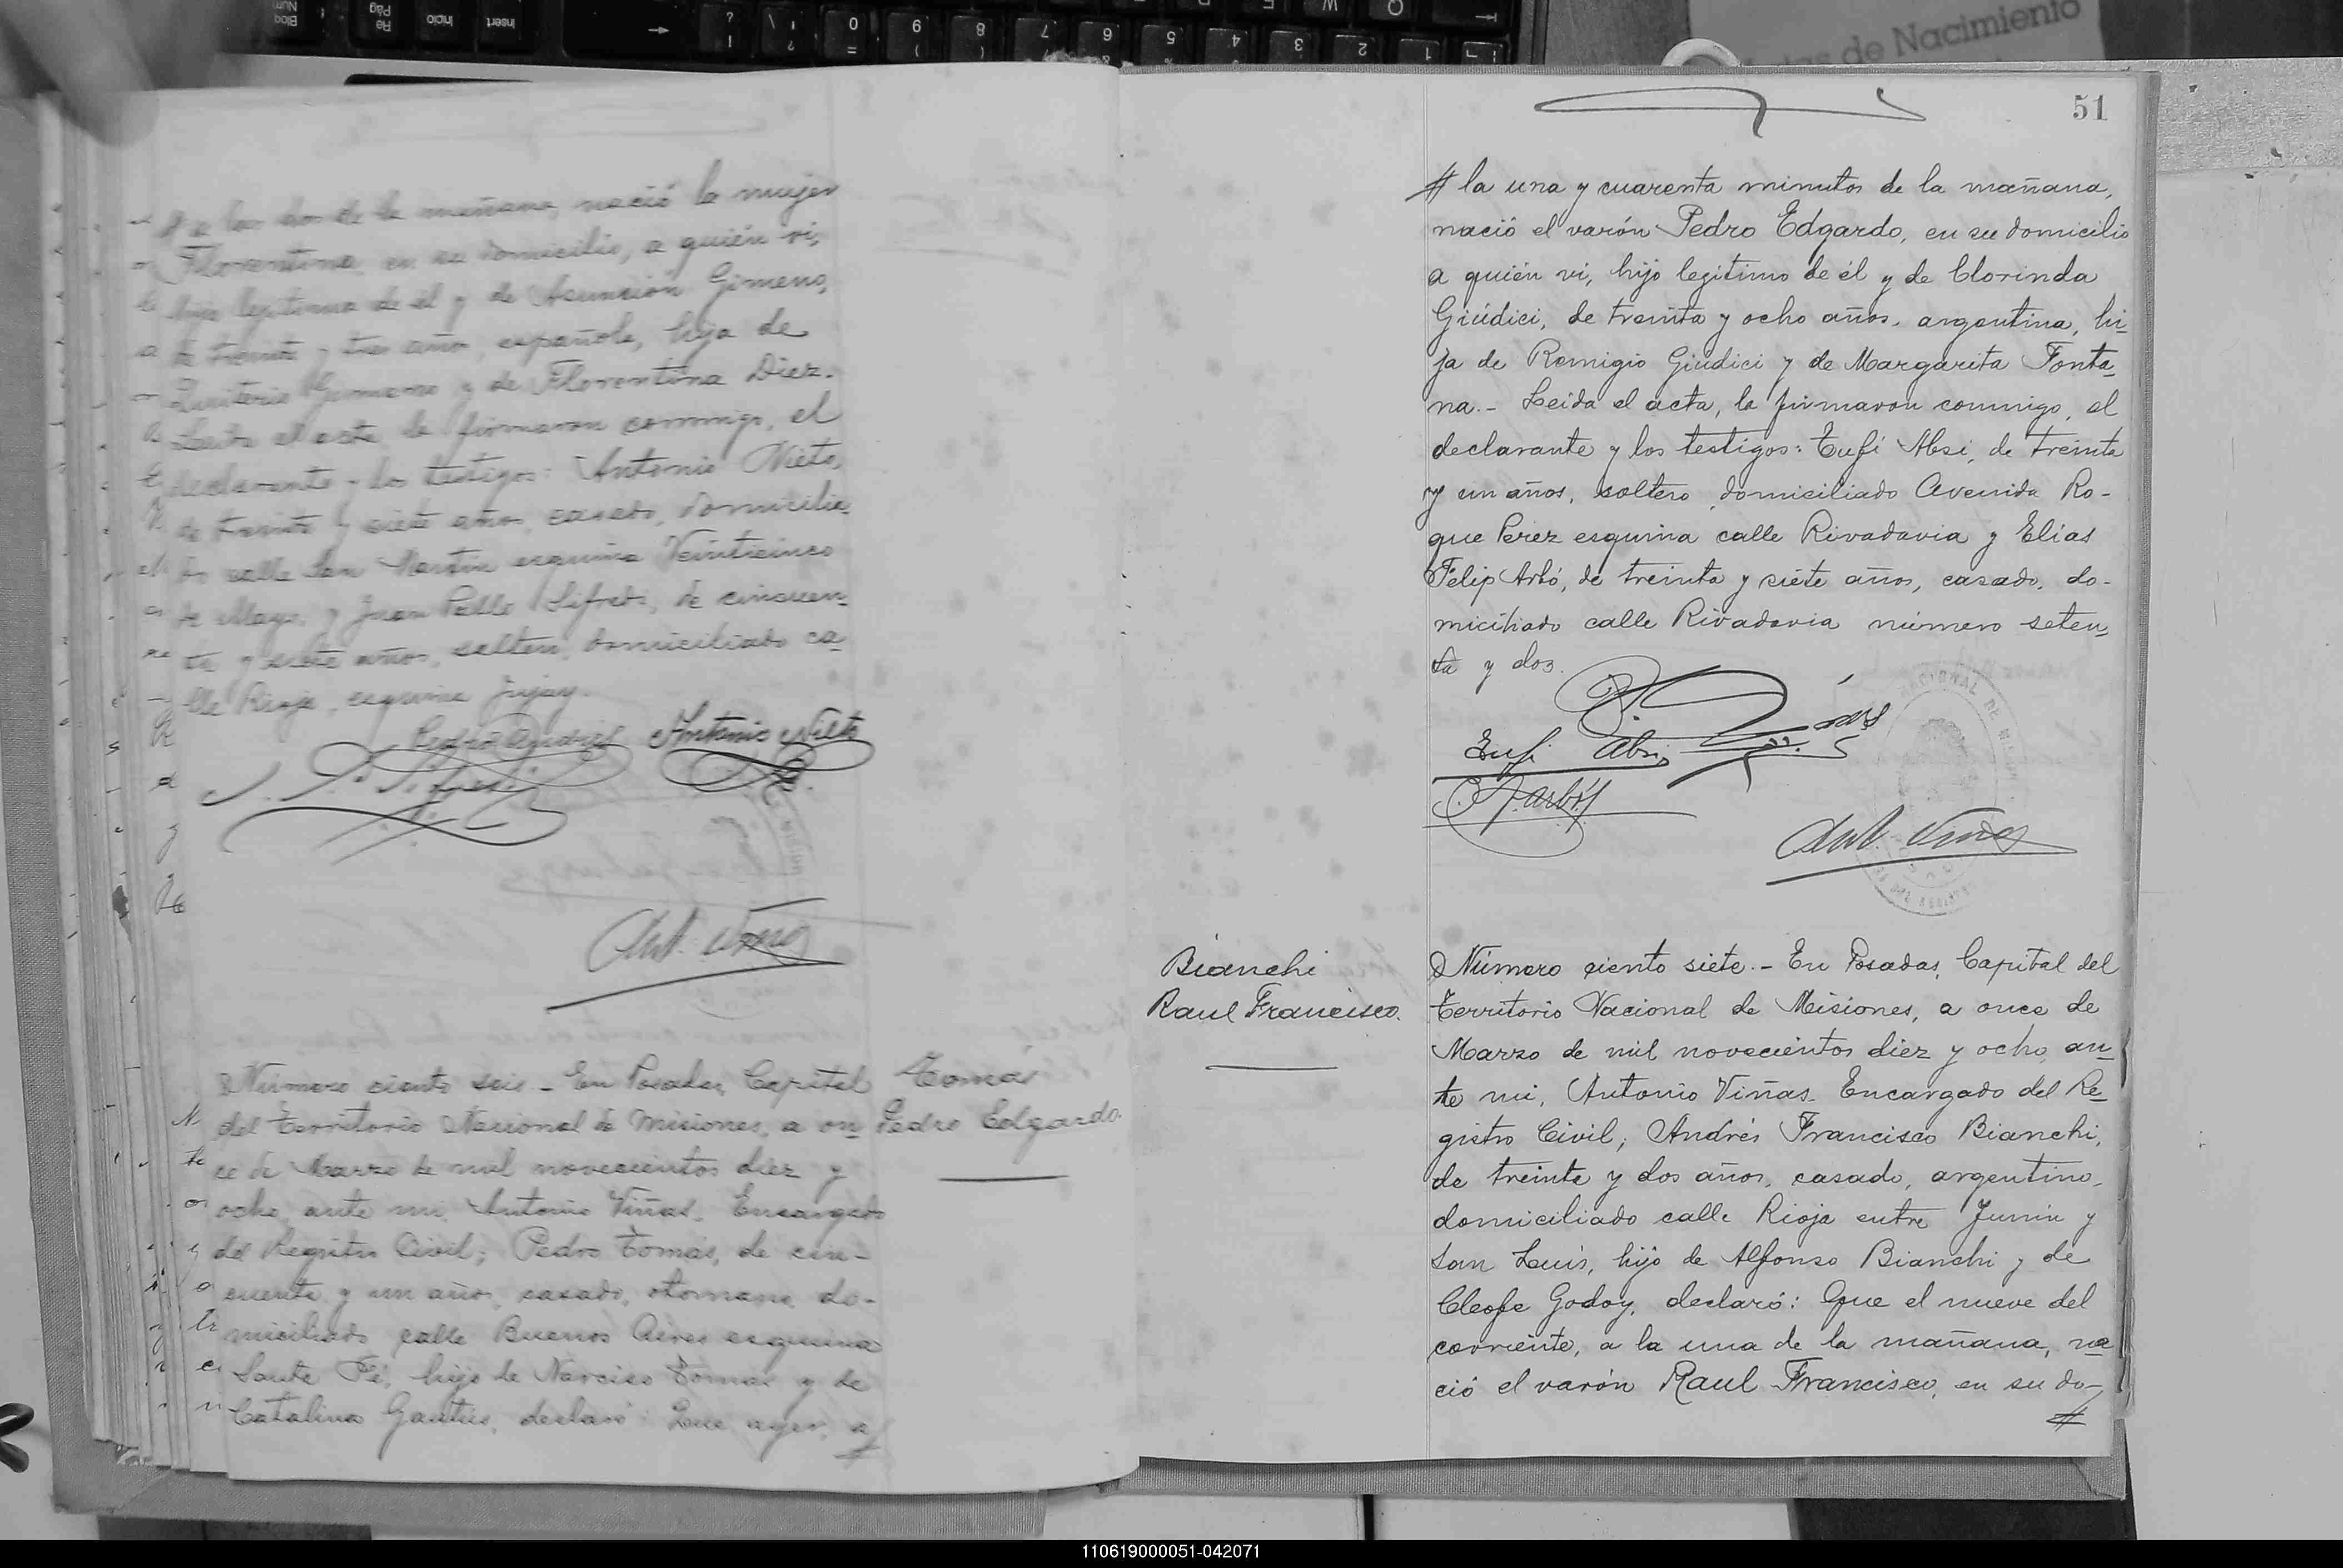 de Nacimiento
# a las dos de la mañana, nació la mujer
Florentina, en su domicilio, a quién vi,
hija legitima de él y de Asunción Gimeno,
de treinta y tres años, española, hija de
Quiterio Gimeno y de Florentina Diez.
Leida el acta, la firmaron conmigo, el
declarante y los testigos: Antonio Nieto,
de treinta y siete años, casado, domicilia
do calle San Martín esquina Veinticinco
de Mayo, y Juan Pablo Sifredi, de cincuen
ta y siete años, soltero, domiciliado ca
lle Rioja, esquina Jujuy.
Antonio Nieto
Ant. Viñas
Número ciento seis - En Posadas, Capital
del Territorio Nacional de Misiones, a on
ce de Marzo de mil novecientos diez y
ocho, ante mi, Antonio Viñas, Encargado
del Registro Civil; Pedro Tomás, de cin-
cuenta y un años, casado, otomano, do-
miciliado calle Buenos Aires esquina
Santa Fé, hijo de Narciso Tomas y de
Catalina, declaró: Que ayer, a #
Tomás
Pedro Edgardo.
51
# la una y cuarenta minutos de la mañana,
nació el varón Pedro Edgardo, en su domicilio
a quién vi, hijo legitimo de él y de Clorinda
Giúdici, de treinta y ocho años, argentina, hi-
ja de Remigio Giúdici y de Margarita Fonta-
na. - Leida el acta, la firmaron conmigo, el
declarante y los testigos: Tufi Absi, de treinta
y un años, soltero, domiciliado Avenida Ro-
que Perez esquina calle Rivadavia y Elías
Felip Arbó, de treinta y siete años, casado, do-
miciliado calle Rivadavia número seten-
ta y dos.
Tufi Absi
Ant. Viñas
Bianchi
Raul Francisco.
Número ciento siete. - En Posadas, Capital del
Territorio Nacional de Misiones, a once de
Marzo de mil novecientos diez y ocho, an-
te mi, Antonio Viñas. Encargado del Re-
gistro Civil; Andrés Francisco Bianchi,
de treinta y dos años, casado, argentino,
domiciliado calle Rioja entre Junín y
San Luis, hijo de Alfonso Bianchi y de
Cleofe Godoy, declaró: Que el nueve del
corriente, a la una de la mañana, na
ció el varón Raul Francisco, en su do-
#
110619000051-042071